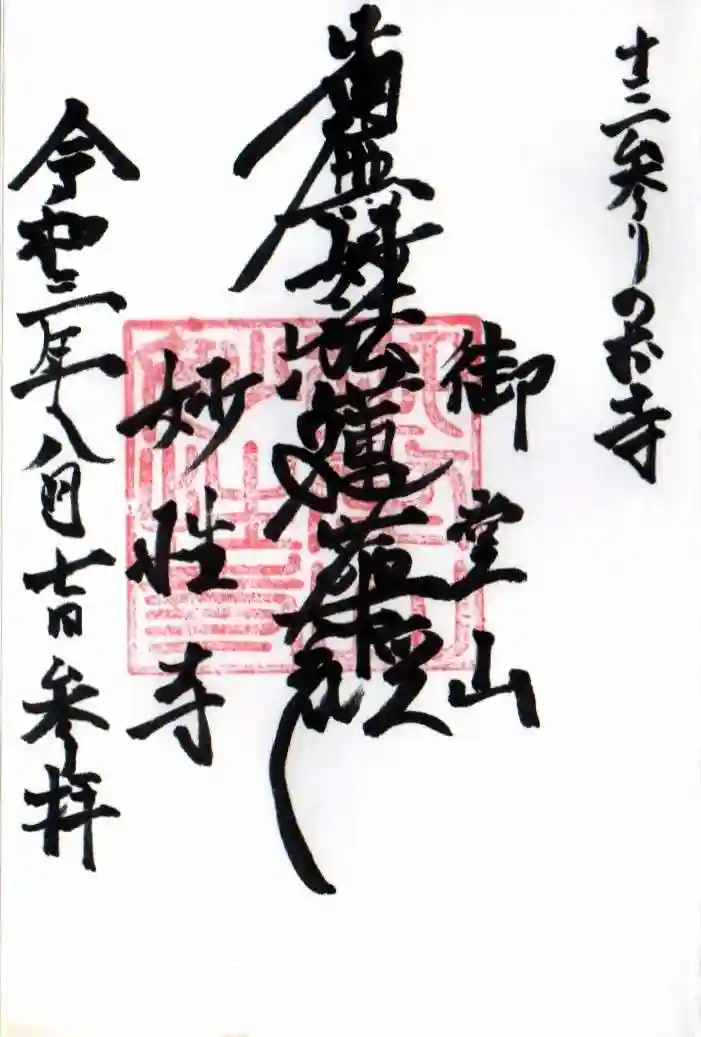 十三参りのお寺
御堂山
南無妙法蓮華経
妙性寺
令和三年八月七日参拝